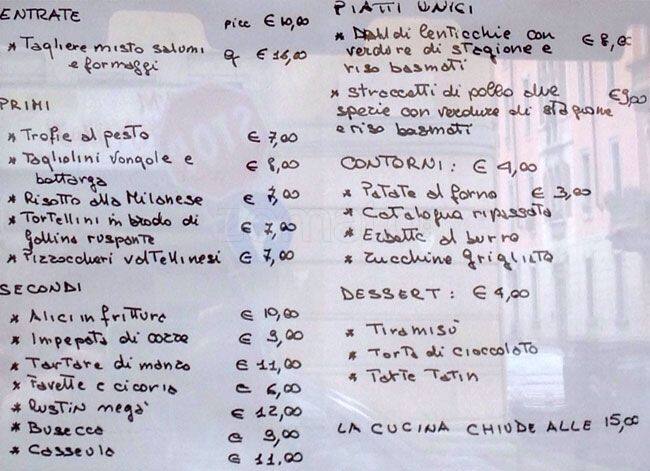 ENTRATE picc € 10,00
* Tagliere misto salumi gr € 16,00
e formaggi
PRIMI
* Trofie al pesto € 7,00
* Tagliolini vongole e € 8,00
bottarga
* Risotto alla Milanese € 7,00
* Tortellini in brodo di € 7,00
gallina ruspante
* Pizzoccheri valtellinesi € 7,00
SECONDI
* Alici in frittura € 10,00
* Impepata di cozze € 9,00
* Tartare di manzo € 11,00
* Favette e cicoria € 6,00
* Rustin negà € 12,00
* Busecca € 9,00
* Casseula € 11,00
PIATTI UNICI
* Dahl di lenticchie con € 8,00
verdure di stagione e
riso basmati
* straccetti di pollo alle € 9,00
spezie con verdure di stagione
e riso basmati
CONTORNI: € 4,00
* Patate al forno € 3,00
* Catalogna ripassata
* Erbette al burro
* Zucchine grigliate
DESSERT: € 4,00
* Tiramisù
* Torta di cioccolato
* Tarte Tatin
LA CUCINA CHIUDE ALLE 15,00